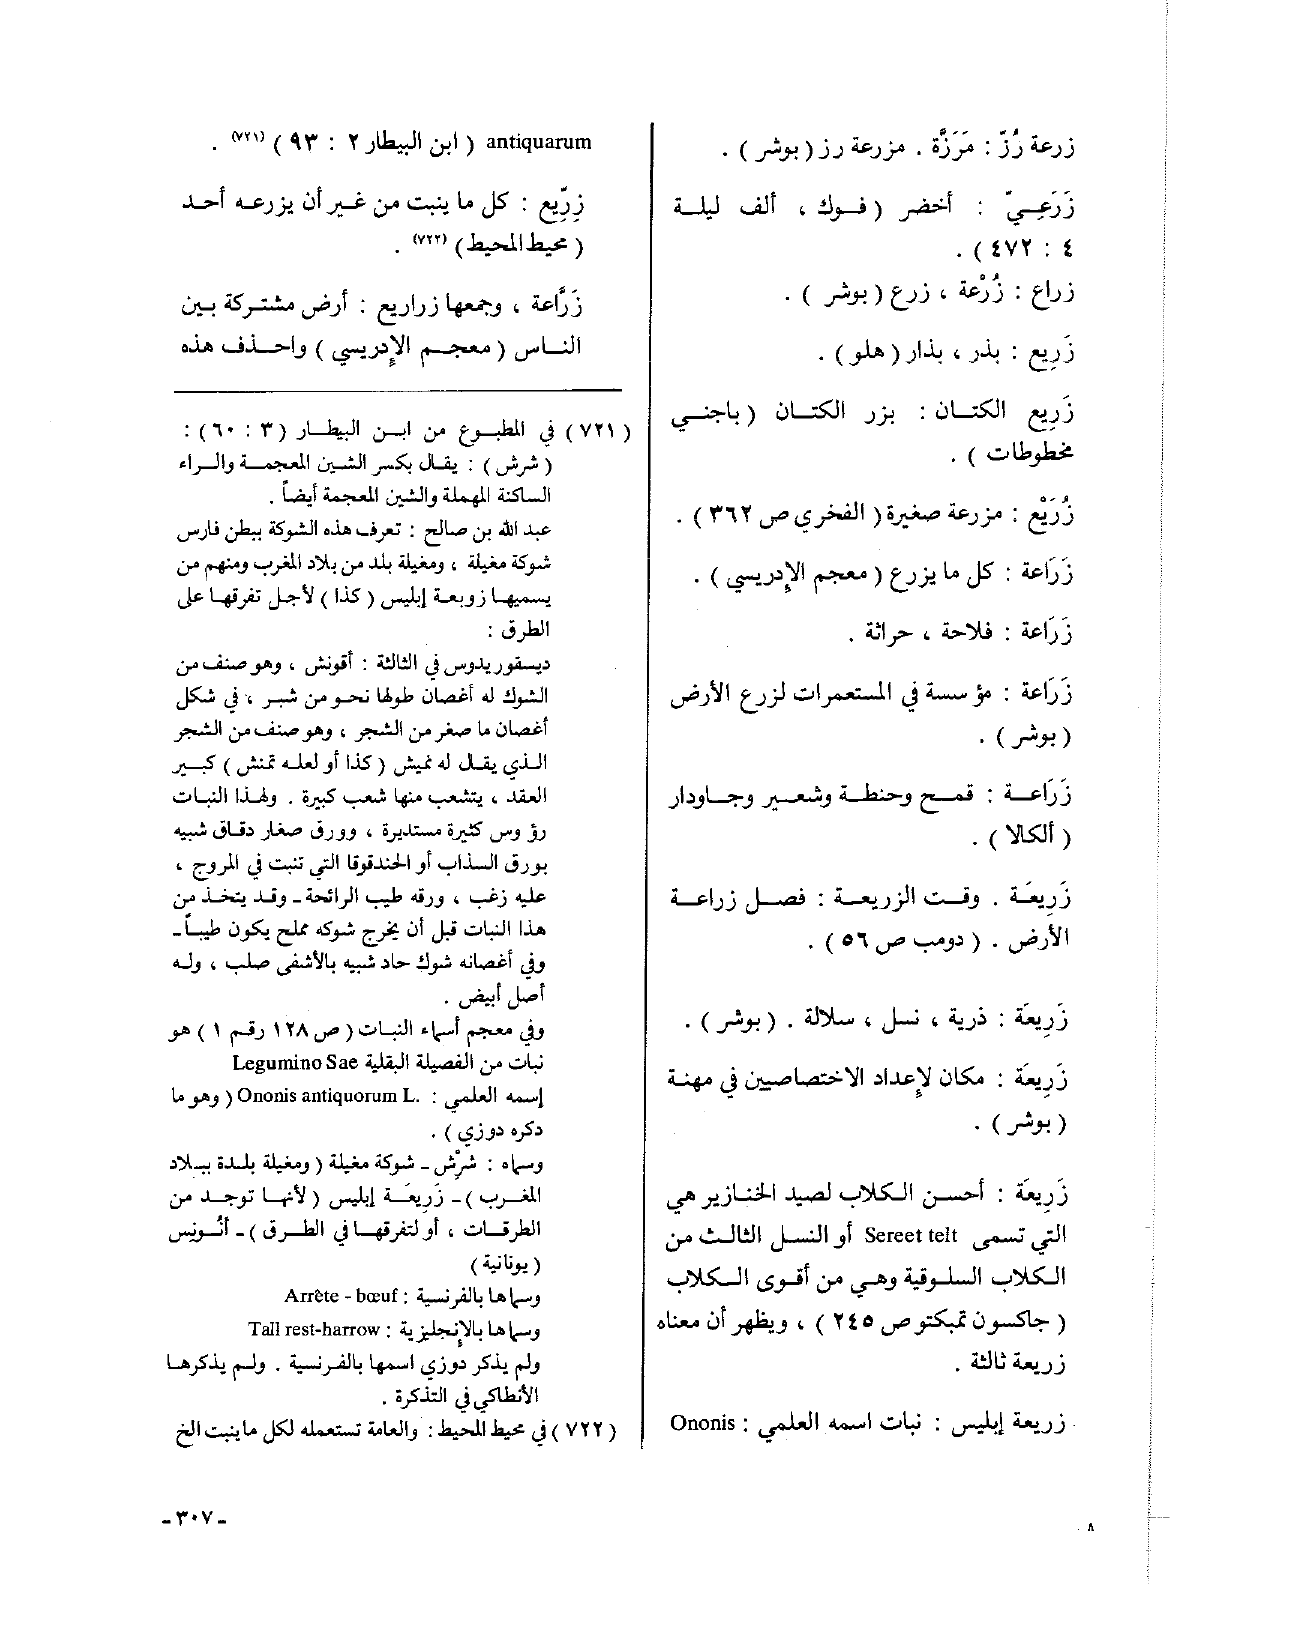 زرعة رُزّ : مَرَزَّة . مزرعة رز ( بوشر ) .
زَرَعِيّ : أخضر ( فوك ، ألف ليلة
٤ : ٤٧٢ ) .
زراع : زُرْعة ، زرع ( بوشر ) .
زَرِيع : بذر ، بذار ( هلو ) .
زَرِيع الكتان : بزر الكتان ( باجني
مخطوطات ) .
زُرَيْع : مزرعة صغيرة ( الفخري ص ٣٦٢ ) .
زَرَاعة : كل ما يزرع ( معجم الإدريسي ) .
زَرَاعة : فلاحة ، حراثة .
زَرَاعة : مؤسسة في المستعمرات لزرع الأرض
( بوشر ) .
زَرَاعة : قمح وحنطة وشعير وجاودار
( ألكالا ) .
زَرِيعَة . وقت الزريعة : فصل زراعة
الأرض . ( دومب ص ٥٦ ) .
زَرِيعَة : ذرية ، نسل ، سلالة . ( بوشر ) .
زَرِيعَة : مكان لإعداد الاختصاصيين في مهنة
( بوشر ) .
زَرِيعَة : أحسن الكلاب لصيد الخنازير هي
التي تسمى Sereet telt أو النسل الثالث من
الكلاب السلوقية وهي من أقوى الكلاب
( جاكسون تمبكتو ص ٢٤٥ ) ، ويظهر أن معناه
زريعة ثالثة .
زريعة إبليس : نبات اسمه العلمي : Ononis
antiquarum ( ابن البيطار ٢ : ٩٣ ) (٧٢١) .
زِرِّيع : كل ما ينبت من غير أن يزرعه أحد
( محيط المحيط ) (٧٢٢) .
زَرَّاعة ، وجمعها زراريع : أرض مشتركة بين
الناس ( معجم الإدريسي ) واحذف هذه
(٧٢١) في المطبوع من ابن البيطار (٣ : ٦٠) :
( شرش ) : يقال بكسر الشين المعجمة والراء
الساكنة المهملة والشين المعجمة أيضاً .
عبد الله بن صالح : تعرف هذه الشوكة ببطن فارس
شوكة مغيلة ، ومغيلة بلد من بلاد المغرب ومنهم من
يسميها زوبعة إبليس ( كذا ) لأجل تفرقها على
الطرق :
ديسقوريدوس في الثالثة : أقونش ، وهو صنف من
الشوك له أغصان طولها نحو من شبر ، في شكل
أغصان ما صغر من الشجر ، وهو صنف من الشجر
الذي يقال له غيش ( كذا أو لعله تمنش ) كبير
العقد ، يتشعب منها شعب كبيرة . ولهذا النبات
رؤوس كثيرة مستديرة ، وورق صغار دقاق شبيه
بورق السذاب أو الحندقوقا التي تنبت في المروج ،
عليه زغب ، ورقه طيب الرائحة - وقد يتخذ من
هذا النبات قبل أن يخرج شوكه مملح يكون طيباً -
وفي أغصانه شوك حاد شبيه بالأشفى صلب ، وله
أصل أبيض .
وفي معجم أسماء النبات ( ص ١٢٨ رقم ١ ) هو
نبات من الفصيلة البقلية Legumino Sae
إسمه العلمي : Ononis antiquorum L. ( وهو ما
ذكره دوزي ) .
وسماه : شِرْش - شوكة مغيلة ( ومغيلة بلدة ببلاد
المغرب ) - زَرِيعَة إبليس ( لأنها توجد من
الطرقات ، أو لتفرقها في الطرق ) - أنُونِس
( يونانية )
وسماها بالفرنسية : Arrête - bœuf
وسماها بالإنجليزية : Tall rest-harrow
ولم يذكر دوزي اسمها بالفرنسية . ولم يذكرها
الأنطاكي في التذكرة .
( ٧٢٢ ) في محيط المحيط : والعامة تستعمله لكل ما ينبت الخ
- ٣٠٧ -
٨